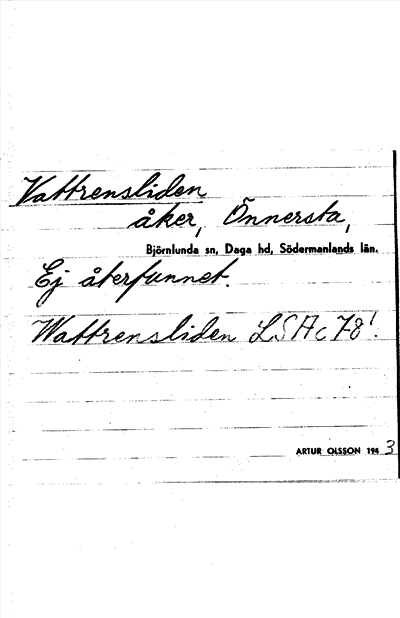 Vattrensliden
åker, Önnersta,
Björnlunda sn, Daga hd, Södermanlands län.
Ej återfunnet.
Wattrensliden LSAc 78!
ARTUR OLSSON 1943